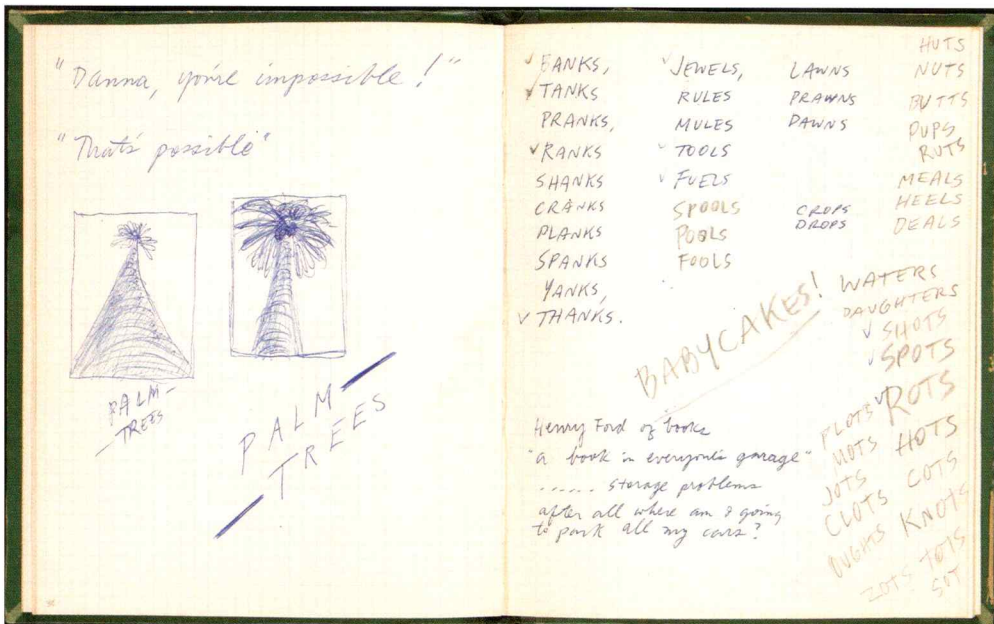 "Danna, you're impossible!"
"That's possible"
PALM-
-TREES
PALM-
-TREES
BANKS,
TANKS
PRANKS,
RANKS
SHANKS
CRANKS
PLANKS
SPANKS
YANKS,
THANKS.
JEWELS,
RULES
MULES
TOOLS
FUELS
SPOOLS
POOLS
FOOLS
LAWNS
PRAWNS
DAWNS
CROPS
DROPS
HUTS
NUTS
BUTTS
PUPS
RUTS
MEALS
HEELS
DEALS
WATERS
DAUGHTERS
SHOTS
SPOTS
PLOTS ROTS
MOTS HOTS
JOTS COTS
CLOTS KNOTS
OUGHTS TOTS
ZOTS SOT
BABYCAKES!
Henry Ford of books
"a book in everyone's garage"
...... storage problems
after all where am I going
to park all my cars?